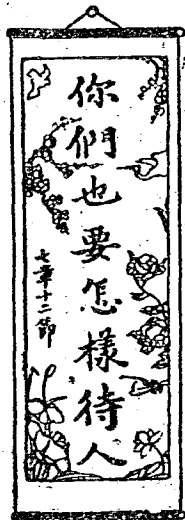 你們也要怎樣待人
七章十二節